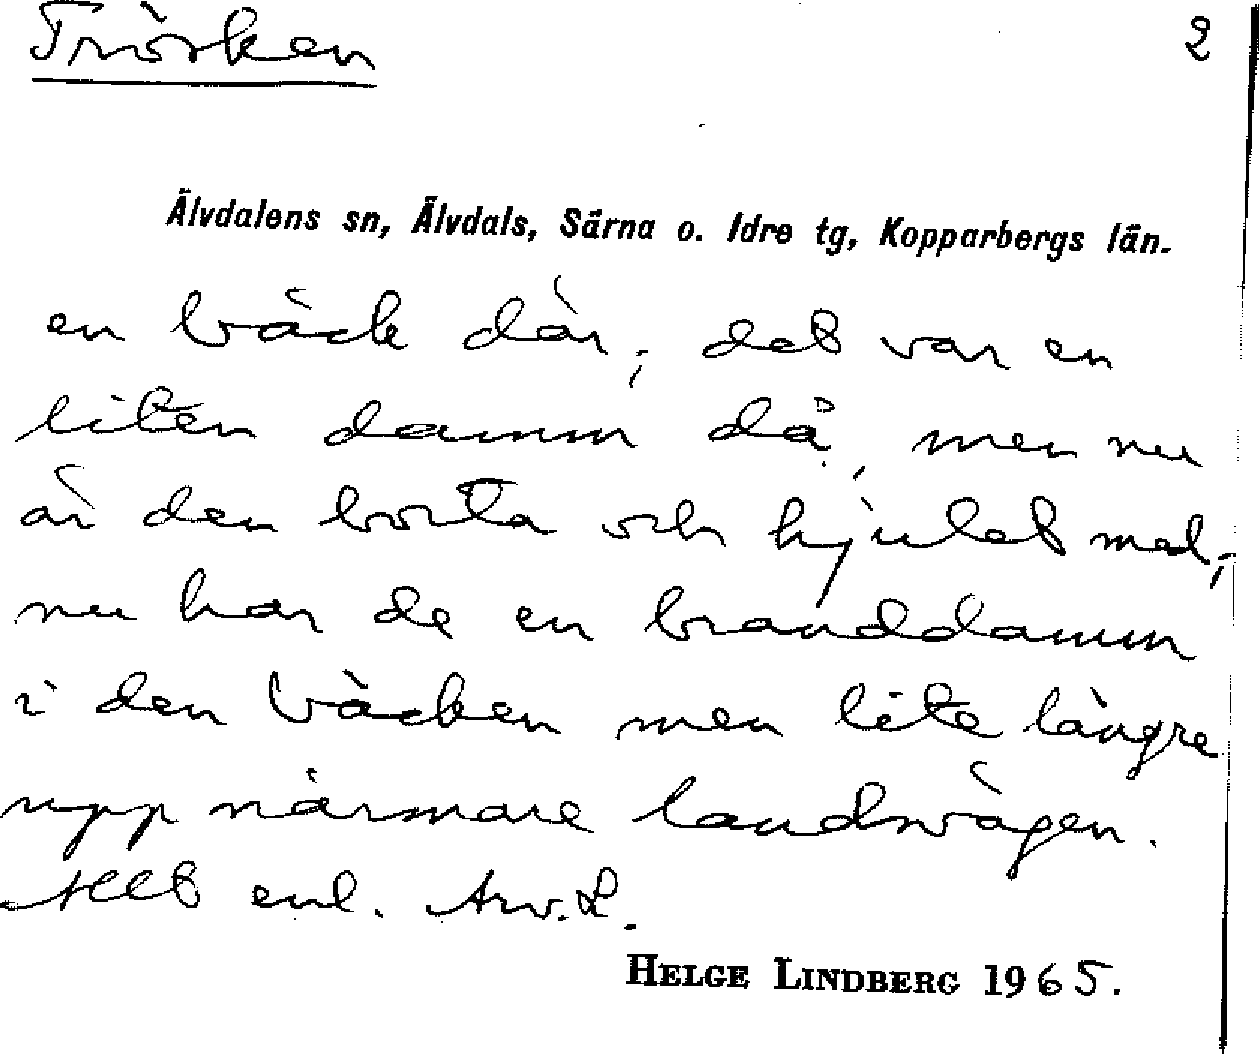 Trösken 2
Älvdalens sn, Älvdals, Särna o. Idre tg, Kopparbergs län.
en bäck där; det var en
liten damm då, men nu
är den borta och hjulet med;
nu har de en branddamm
i den bäcken men lite längre
upp närmare landsvägen.
Allt enl. Arv. L.
HELGE LINDBERG 1965.